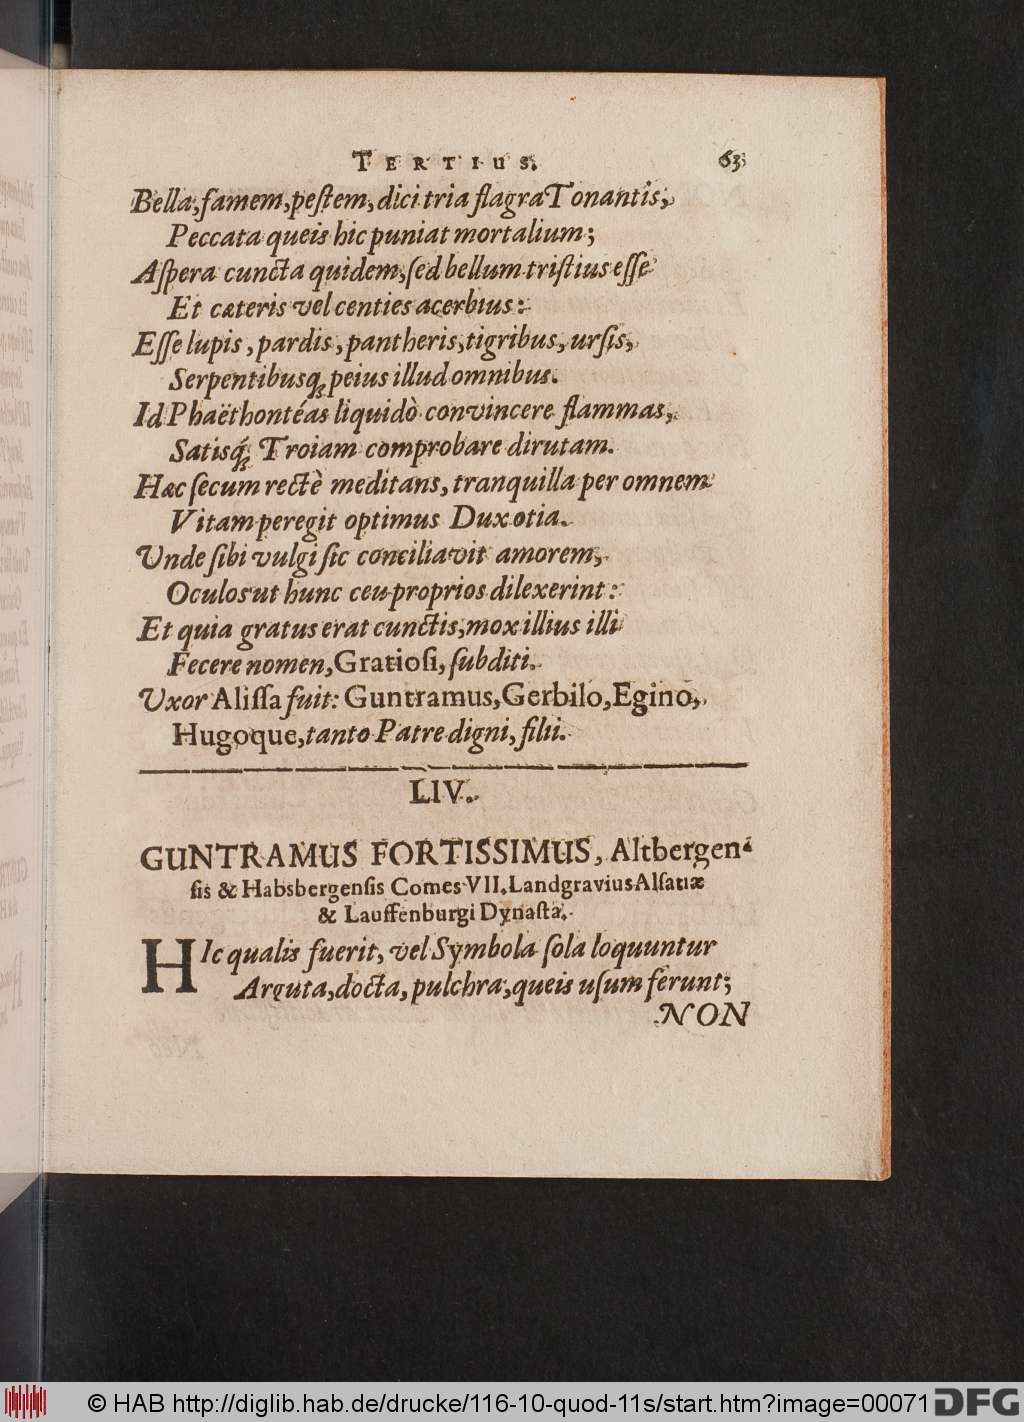 TERTIUS. 63
Bella, famem, peſtem, dici tria flagra Tonantis,
Peccata queis hic puniat mortalium;
Aſpera cuncta quidem, ſed bellum triſtius eſſe
Et cæteris vel centies acerbius:
Eſſe lupis, pardis, pantheris, tigribus, urſis,
Serpentibusq́ue peius illud omnibus.
Id Phaëthontéas liquidò convincere flammas,
Satisq́ue Troiam comprobare dirutam.
Hæc ſecum rectè meditans, tranquilla per omnem
Vitam peregit optimus Dux otia.
Unde ſibi vulgi ſic conciliavit amorem,
Oculos ut hunc ceu proprios dilexerint:
Et quia gratus erat cunctis, mox illius illi
Fecere nomen, Gratioſi, ſubditi.
Uxor Aliſſa fuit: Guntramus, Gerbilo, Egino,
Hugoque, tanto Patre digni, filii.
LIV.
GUNTRAMUS FORTISSIMUS, Altbergen⸗
ſis & Habsbergenſis Comes VII. Landgravius Alſatiæ
& Lauffenburgi Dynaſta.
HIc qualis fuerit, vel Symbola ſola loquuntur
Arguta, docta, pulchra, queis uſum ferunt;
NON
© HAB http://diglib.hab.de/drucke/116-10-quod-11s/start.htm?image=00071
DFG